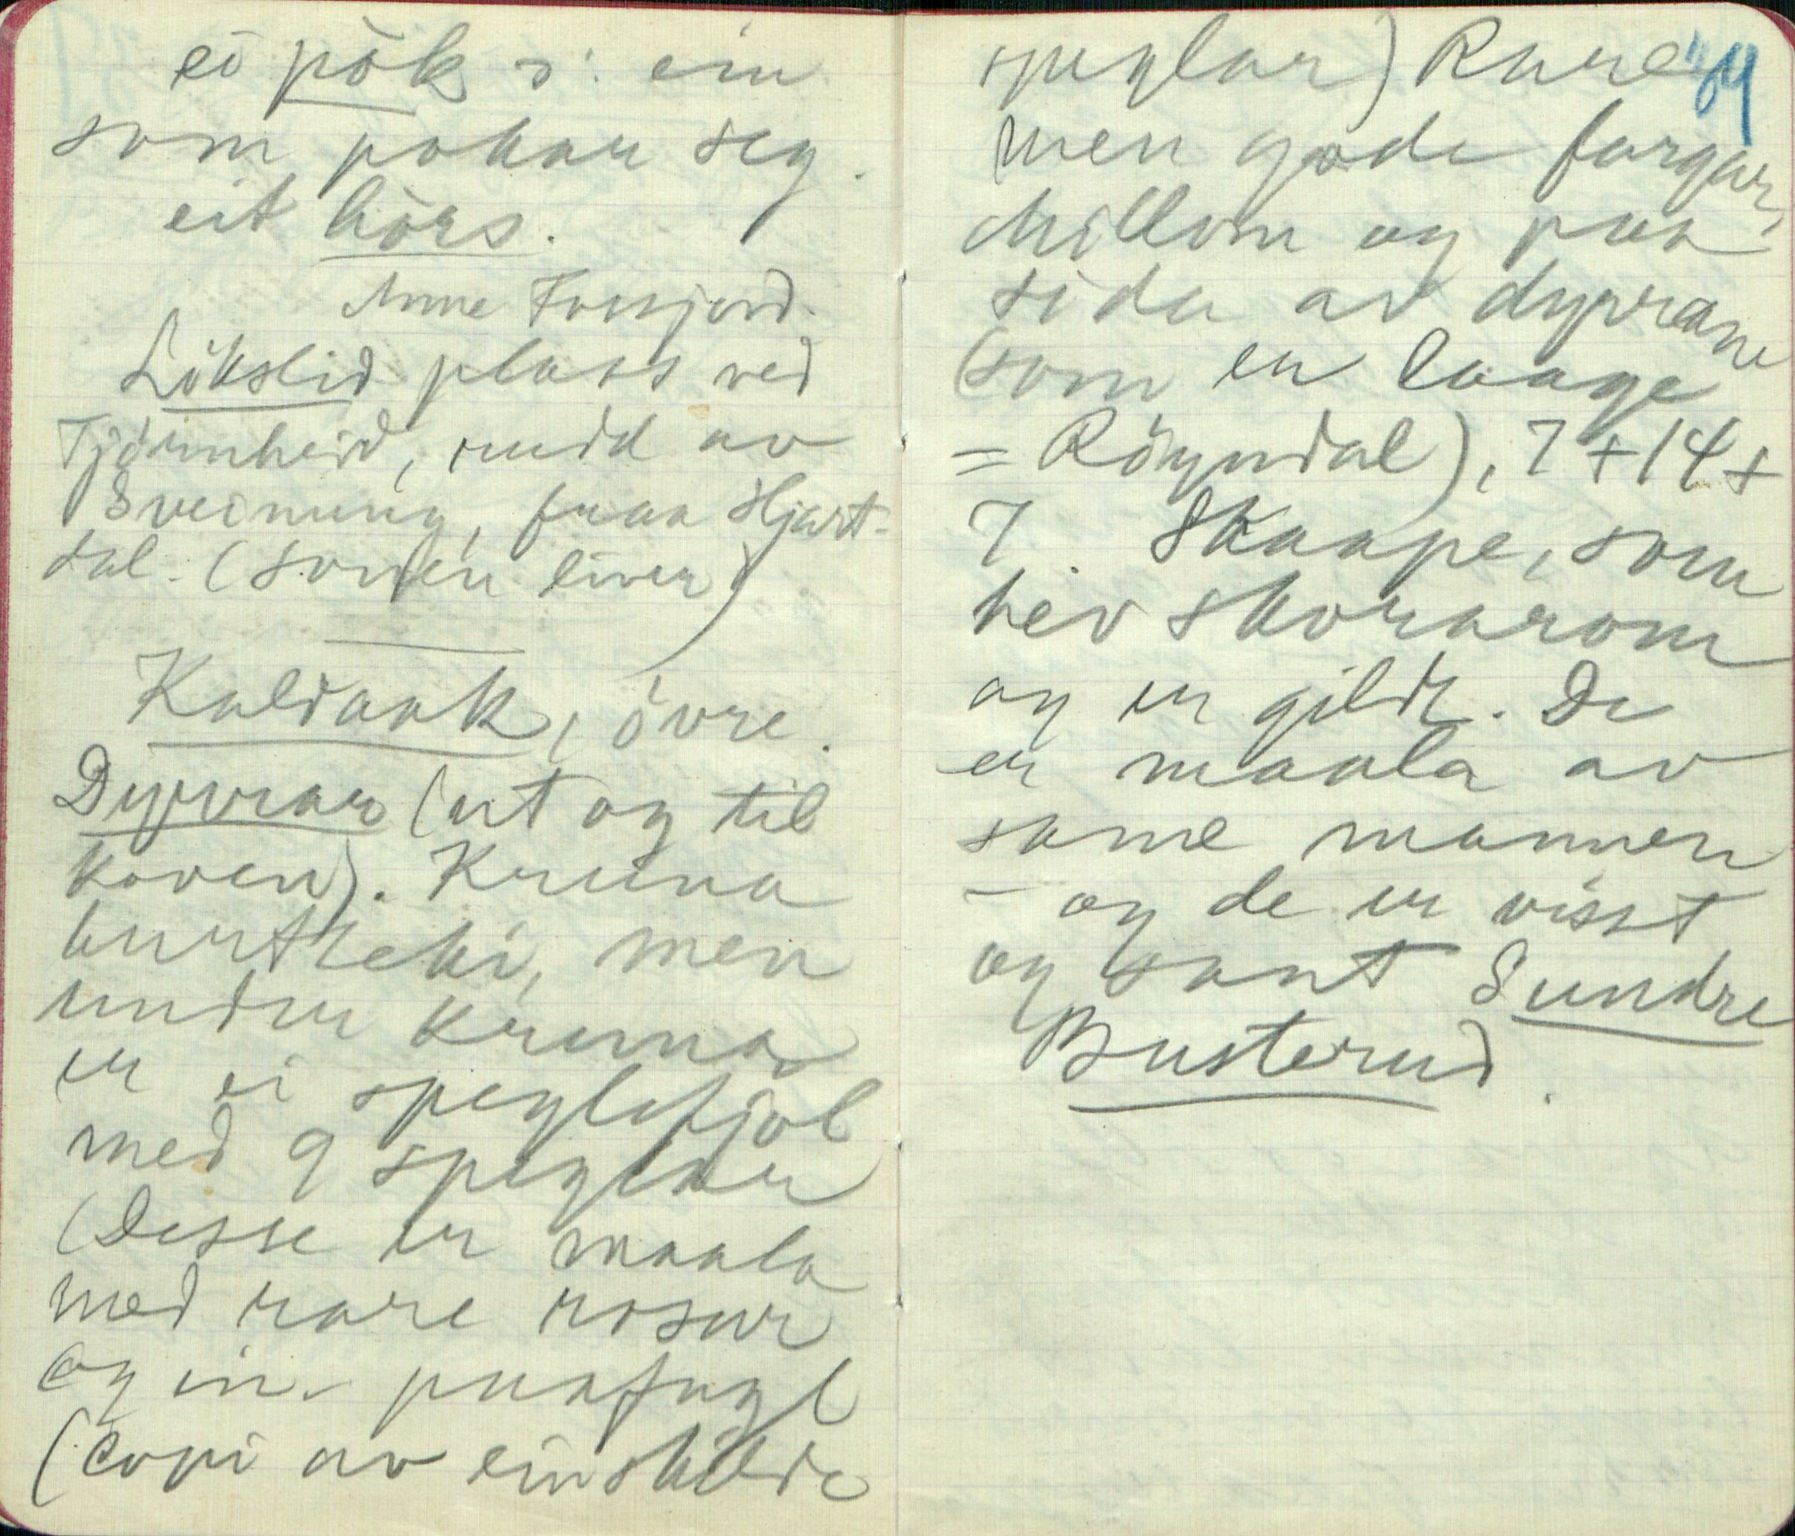 ei pök ɔ: ein
som pokar seg.
eit hörs.
Anne Fossjord.
Lökslid plass ved
Tjörnheid, rudd av
Sveinung, fraa Hjart-
dal. (sonen liver)
Kaldaak, övre.
Dyrrar (ut og til
koven). Kruna
burtteki, men
under kruna
er ei speglefjöl
med 9 speglar
(Desse er maala
med rare rosur
og ein paafugl
(copi av einskilde
speglar) Rare 89
men gode fargar,
Millom og paa
sida av dyrrane
(som er laage
= Röyndal), 7 + 14 +
7. Skaape, som
hev skorarom
og er gildt. De
er maala av
same mannen
- og de er visst
og sant Sundre
Busterud.